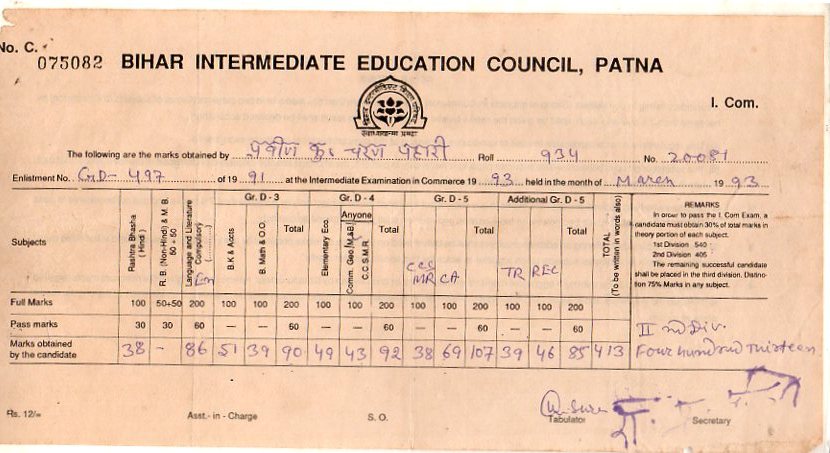 No. C.
075082 BIHAR INTERMEDIATE EDUCATION COUNCIL, PATNA
I. Com.
The following are the marks obtained by प्रवीण कु० चरण पहारी Roll 934 No. 20081
Enlistment No. GD- 497 of 1991 at the Intermediate Examination in Commerce 1993 held in the month of March 1993
Subjects
Rashtra Bhasha (Hindi)
R. B. (Non-Hindi) & M. B. 50 + 50
Language and Literature Compulsory) En
Gr. D - 3
B.K & Accts
B. Math & O.O.
Total
Gr. D - 4
Elementary Eco.
Anyone
Comm. Geo (M.&B.)
C.C.S.M.R.
Total
Gr. D - 5
CCS MR
CA
Total
Additional Gr. D - 5
TR
REC
Total
TOTAL (To be written in words also)
REMARKS
In order to pass the I. Com Exam, a
candidate must obtain 30% of total marks in
theory portion of each subject.
1st Division 540
2nd Division 405
The remaining successful candidate
shall be placed in the third division. Distinc-
tion 75% Marks in any subject.
Full Marks 100 50+50 200 100 100 200 100 100 200 100 100 200 100 100 200
Pass marks 30 30 60 — — 60 — — 60 — — 60 — — 60 II nd Div.
Marks obtained by the candidate 38 - 86 51 39 90 49 43 92 38 69 107 39 46 85 413 Four hundred Thirteen
Rs. 12/=
Asst.- in - Charge
S. O.
Tabulator
Secretary